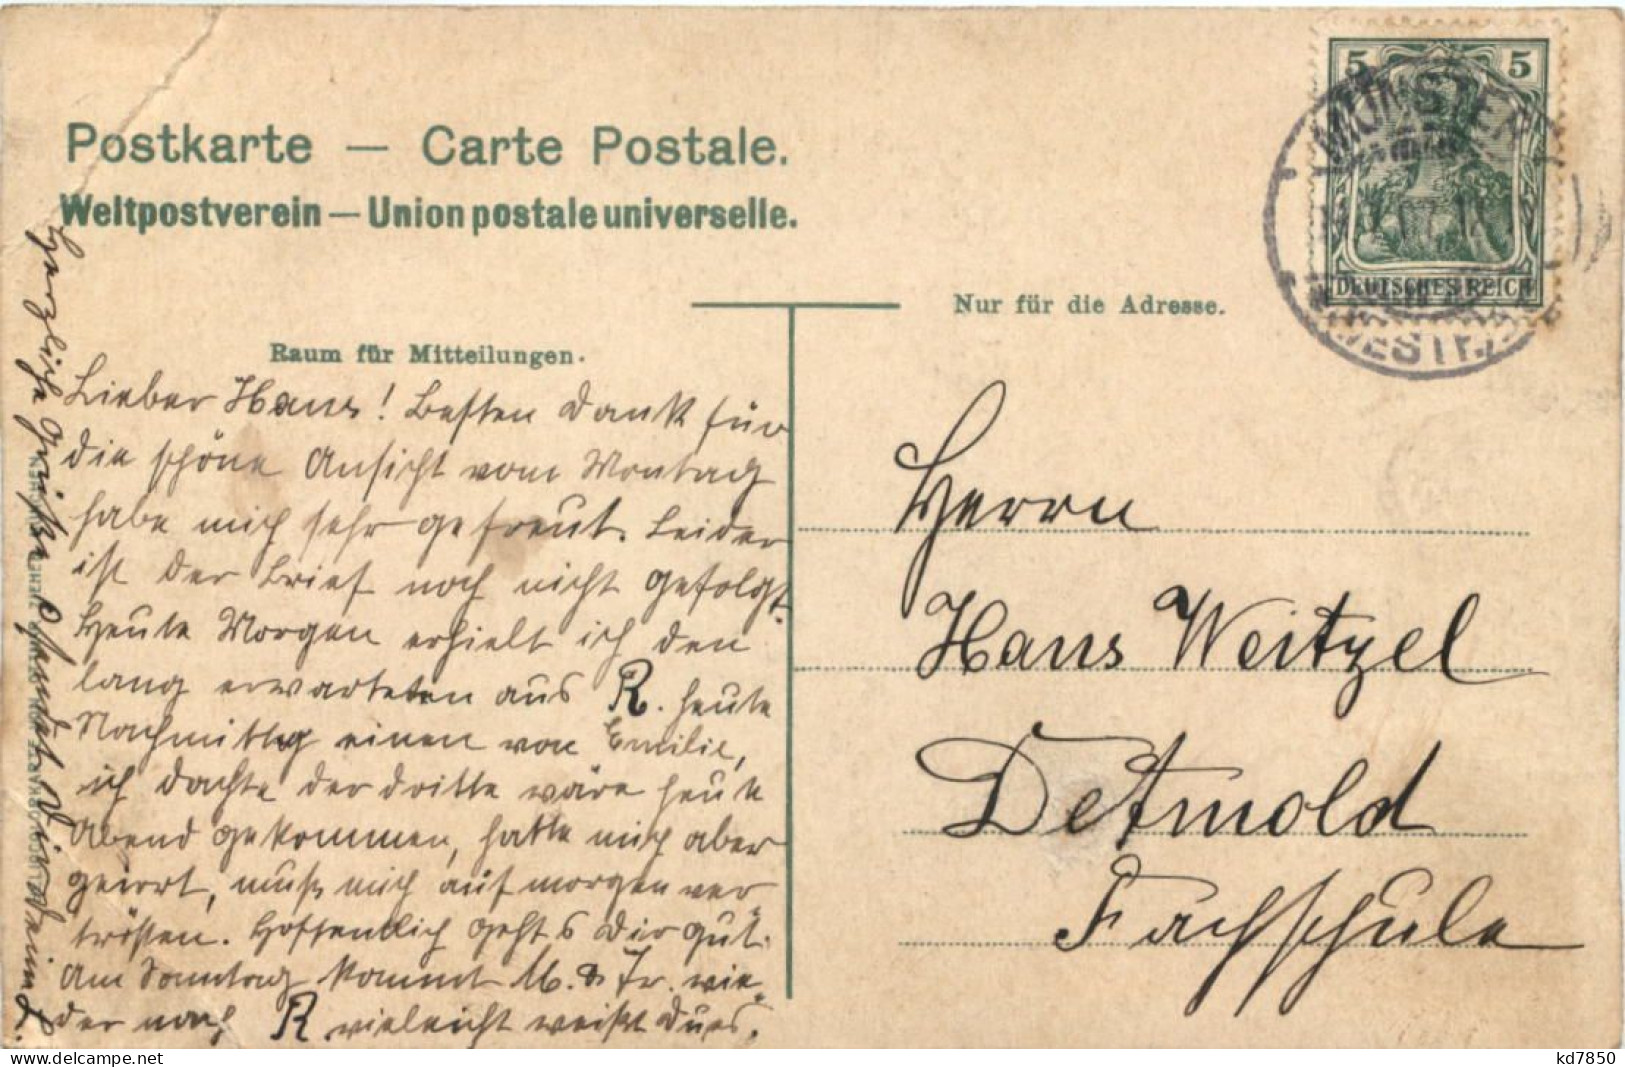 Postkarte — Carte Postale.
Weltpostverein — Union postale universelle.
5 5
MÜNSTER
DEUTSCHES REICH
(WESTF.)
Nur für die Adresse.
Raum für Mitteilungen.
Lieber Hans! Besten Dank für
die schöne Ansicht vom Montag
habe mich sehr gefreut. Leider
ist der Brief noch nicht gefolgt.
Heute Morgen erhielt ich den
lang erwarteten aus R. heute
Nachmittag einen von Emilie,
ich dachte der dritte wäre heute
Abend gekommen, hatte mich aber
geirrt, muß mich auf morgen ver-
trösten. Hoffentlich geht s Dir gut.
Am Sonntag kommt M. Fr. wie-
der nach R vieleicht weißt Du es.
Herzliche Grüße sendet Dir Dein
Herrn
Hans Weitzel
Detmold
Fachschule
kd7850